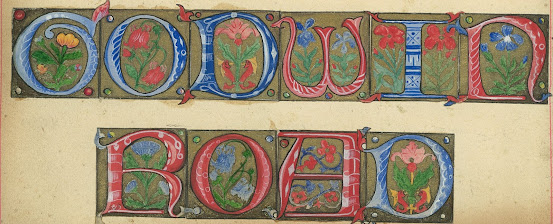 GODWIN
ROAD